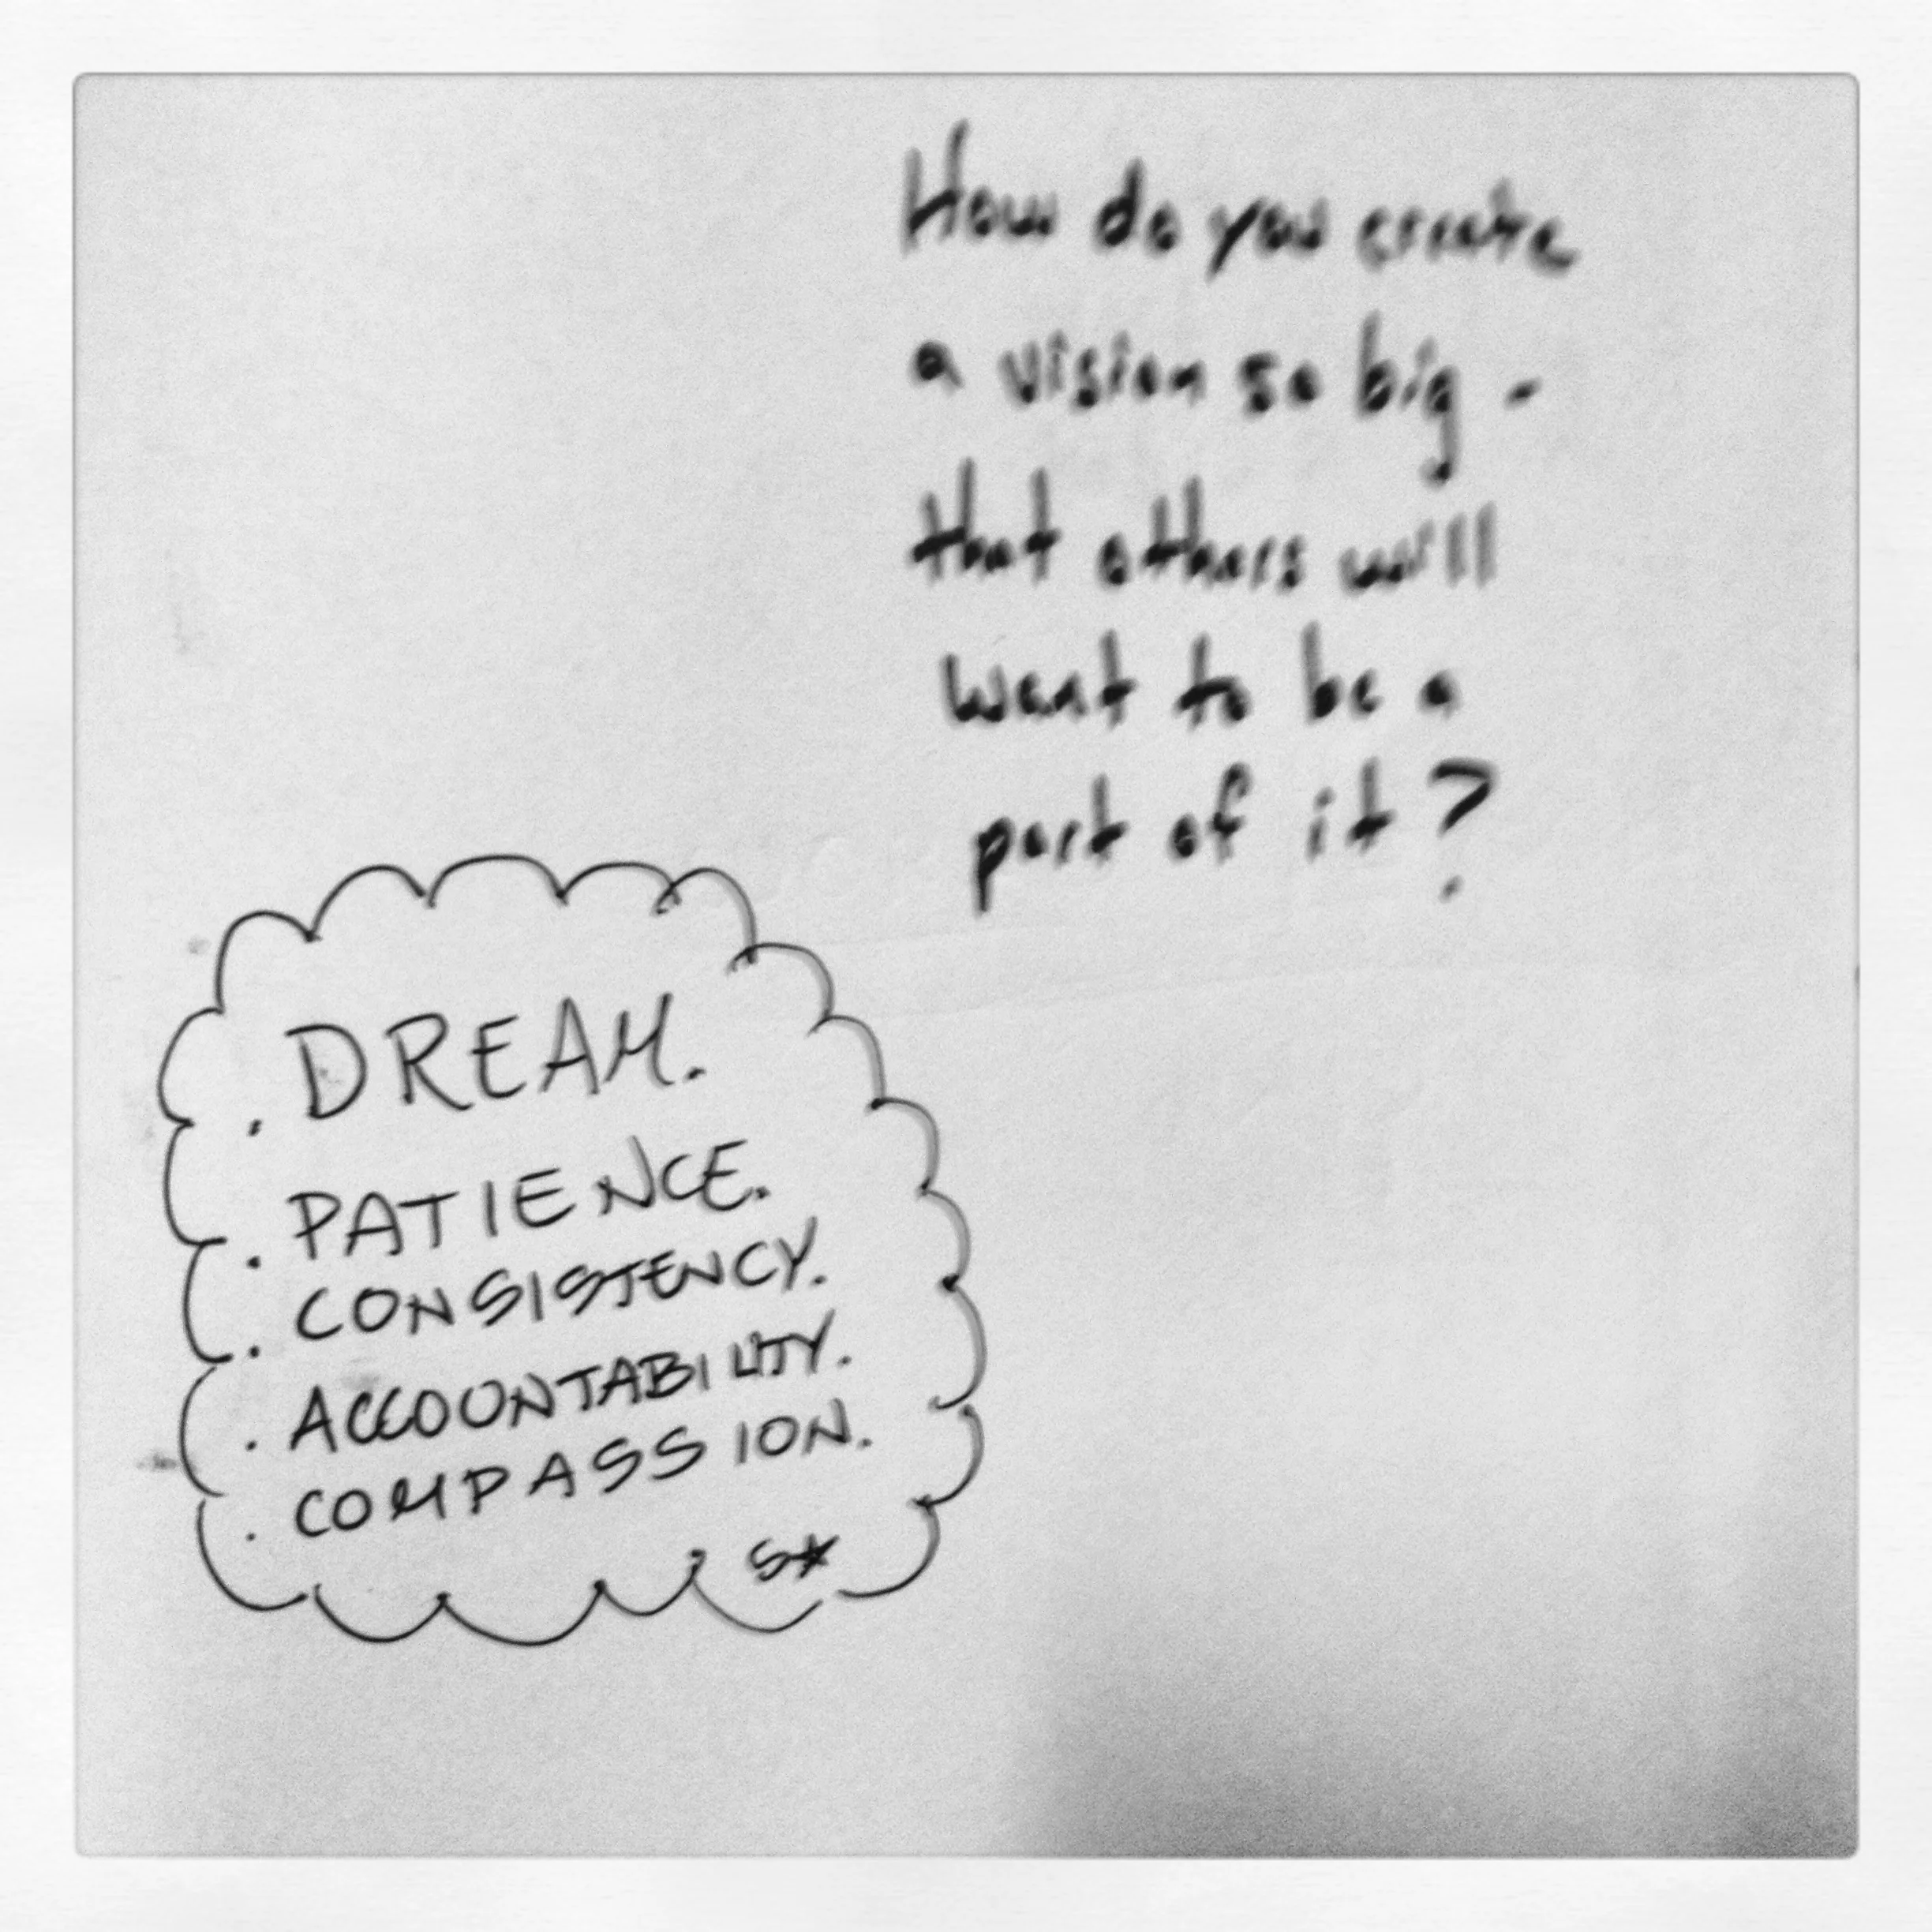 How do you create
a vision so big -
that others will
want to be a
part of it?
. DREAM.
. PATIENCE.
. CONSISTENCY.
. ACCOUNTABILITY.
. COMPASSION.
S★